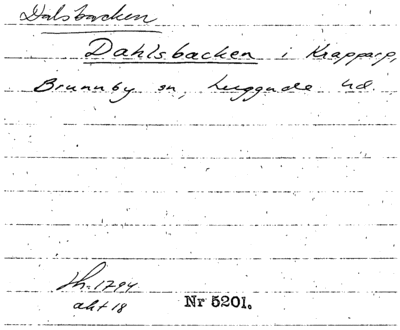 Dalsbacken
Dahlsbacken i Krapparp,
Brunnby sn, Luggude hd.
Lh. 1794
akt 18
Nr 5201.